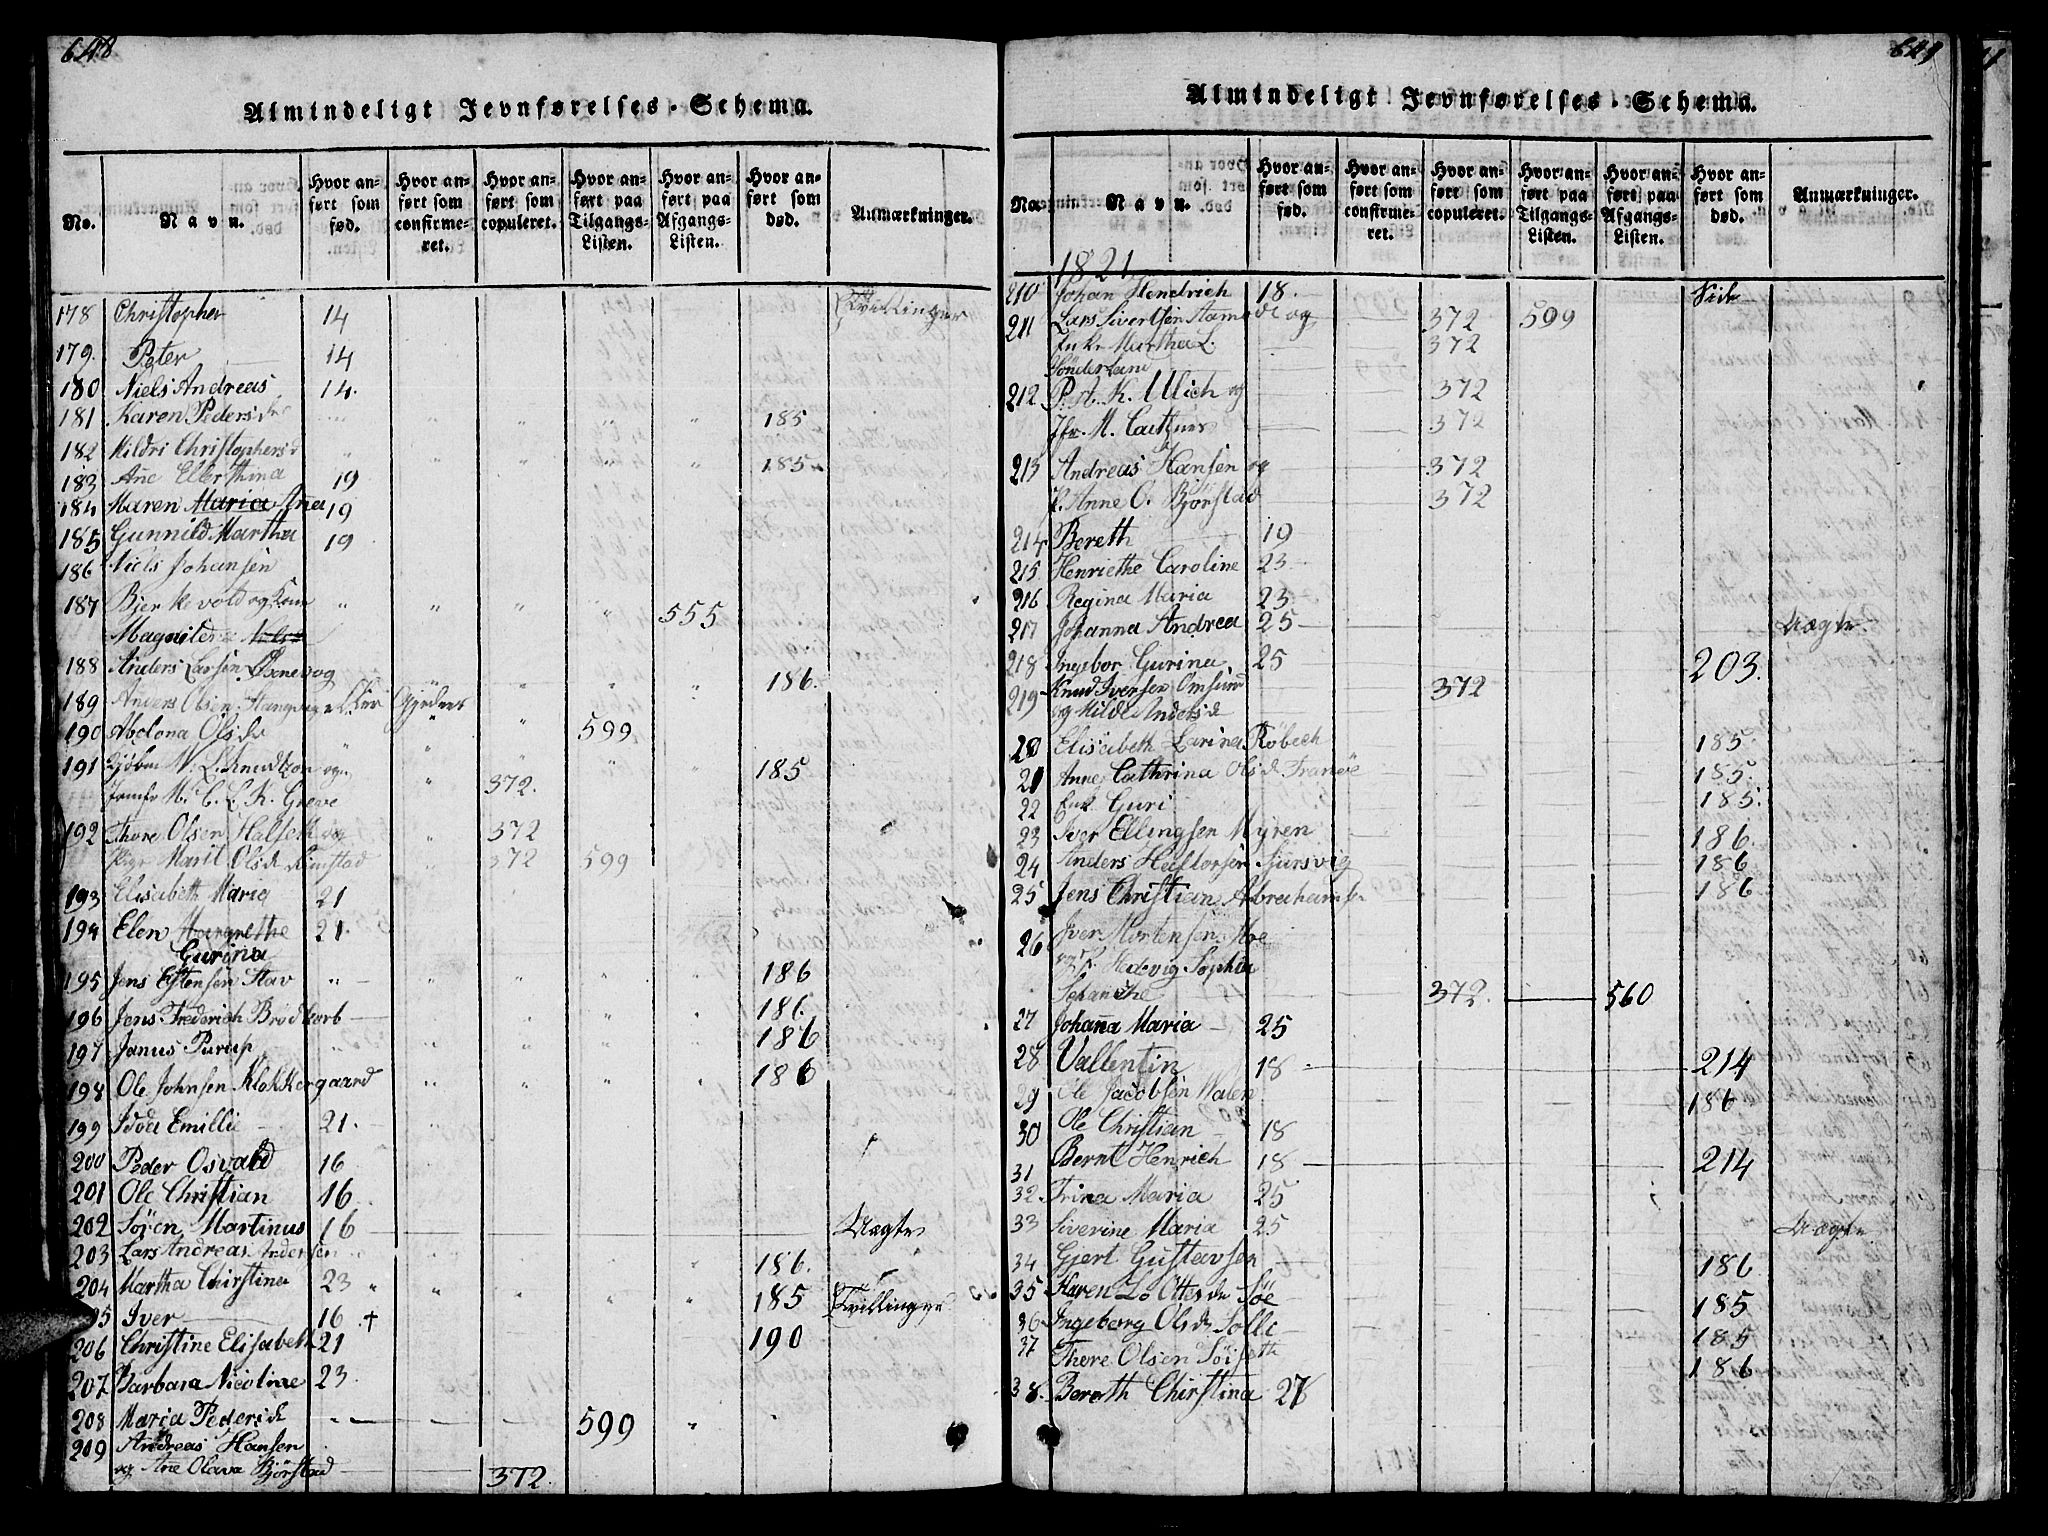 648
Almindeligt Jevnførelses-Schema.
No. Navn. Hvor anført som fød. Hvor anført som confirmeret. Hvor anført som copuleret. Hvor anført paa Tilgangs-Listen. Hvor anført paa Afgangs-Listen. Hvor anført som død. Anmærkninger.
178 Christopher 14 Tvillinger
179. Peter 14
180 Niels Andreas 14.
181 Karen Pedersdr " " " " " 185
182 Mildri Christophersd " " " " " 185
183 Ane Ellerthina 19
184 Maren Maria Ana 19
185 Gunnild Martha 19
186 Niels Johansen
187 Bjerkevold og Kone " " " " 555
Magnild
188 Anders Larsen Øxnevog " " " 186.
189 Anders Olsen
190 Abelona Olsdr " " " 599
191 Kjøbm N. L. Knudtzon og " " " " 185
Jomfr M. C. L. K. Greve " 372.
192 Thore Olsen Halseth og " 372
Pige Marit Olsdr Rimstad " 372 599
193 Elisabeth Maria 21
194 Elen Margrethe 21.
Gurina
195 Jens Estensen Stav " " " " " 186
196 Jens Frederich Brodtkorb " " " 186.
197 Janus Purup " " " " 186
198 Ole Johnsen Klokkergaard " " " " 186
199 Idda Emillie 21.
200 Peder Osvald 16
201 Ole Christian 16
202 Søren Martinus 16 Uægte
203 Lars Andreas Andersen " " 186.
204 Martha Chirstina 23 " " " " " 185 Tvillinger
205 Iver 16 +
206 Christine Elisabeth 21 190
207 Barbara Nicoline 23.
208 Maria Pedersdr " 599 " "
209 Andreas Hansen
og Ane Olava Bjørstad 372.
649
Almindeligt Jevnførelses-Schema.
No. Navn. Hvor anført som fød. Hvor anført som confirmeret. Hvor anført som copuleret. Hvor anført paa Tilgangs-Listen. Hvor anført paa Afgangs-Listen. Hvor anført som død. Anmærkninger.
1821
210 Johan Hendrich 18. Side
211 Lars Sivertsen og 372 599
Enke Martha L. 372
Sønderland
212 P. A. K. Ulich og 372
Jfr. M. 372
213 Andreas Hansen og 372
P. Anne O. Bjørstad 372
214 Bereth 19
215 Henriethe Caroline 23
216 Regina Maria 23
217 Johanna Andrea 25 Uægte
218 Ingebor Gurina 25 203.
219 Knud Iversen Omsund 372
og Mildri Andersdr
20 Elisabeth Larina Røbech 185.
21 Anne Cathrina Olsdr 185.
22 Enk. Guri 185.
23 Iver Ellingsen Myren 186.
24 Anders Hastorsen Siursvig 186
25 Jens Christian Abrahams. 186
26 Iver Mortensen Moe
og P. Hedevig Sophia
Schanche 372. 560
27 Johanna Maria 25
28 Vallentin 18 214
29 Ole Jacobsen Walen 186
30 Ole Christian 18
31 Bernt Henrich 18 214
32 Trina Maria 25
33 Siverine Maria 25 Uægte
34 Gjert Gustavsen 186
35 Karen Lo Ottesdr Søe 185
36 Ingeborg Olsdr Solli 185
37 Thore Olsen Søiseth 186
38. Bereth Chirstina 27